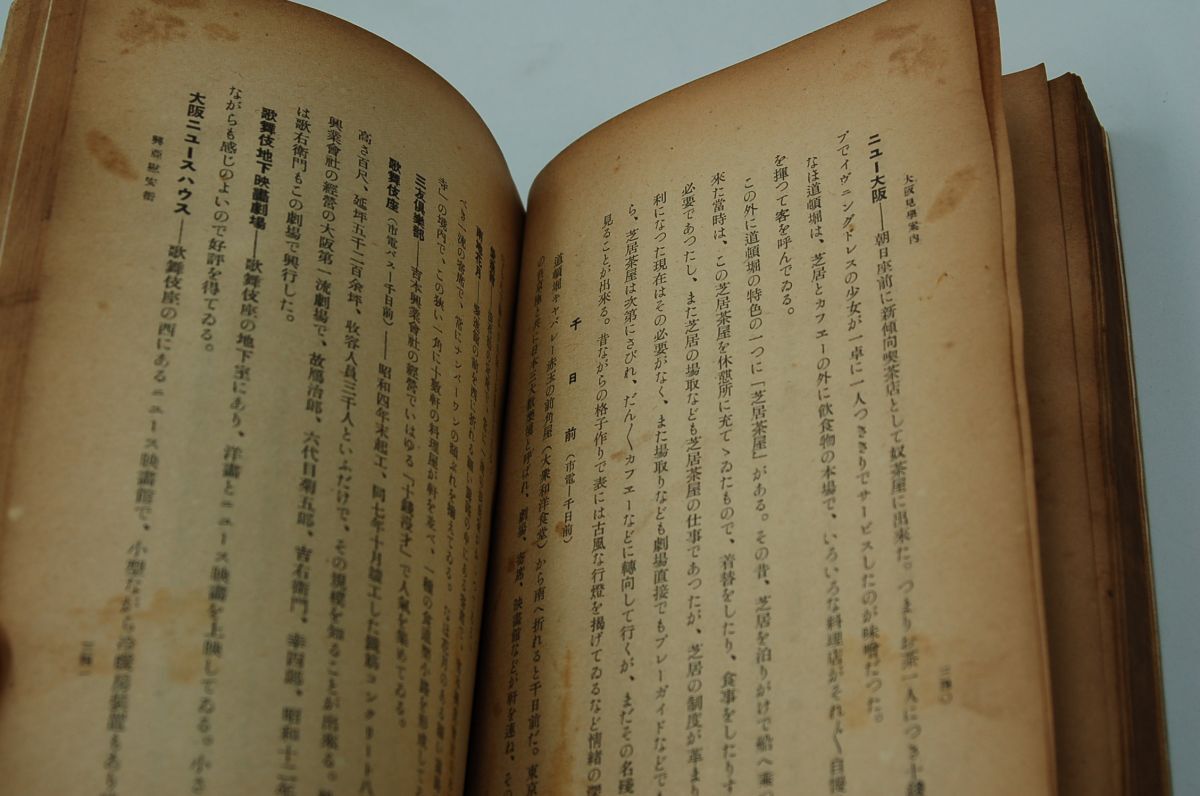 大阪見學案内
ニュー大阪――朝日座前に新傾向喫茶店として奴茶屋に出來た。つまりお茶一人につき十錢
プでイヴニングドレスの少女が一卓に一人つききりでサービスしたのが味噌だつた。
なほ道頓堀は、芝居とカフエーの外に飲食物の本場で、いろいろな料理店がそれ〴〵自慢
を揮つて客を呼んでゐる。
この外に道頓堀の特色の一つに「芝居茶屋」がある。その昔、芝居を泊りがけで船へ乘つ
來た當時は、この芝居茶屋を休憩所に充てゝゐたもので、着替をしたり、食事をしたりす
必要であつたし、また芝居の場取なども芝居茶屋の仕事であつたが、芝居の制度が革まり
利になつた現在はその必要がなく、また場取りなども劇場直接でもプレーガイドなどでも
ら、芝居茶屋は次第にさびれ、だん〳〵カフエーなどに轉向して行くが、まだその名殘
見ることが出來る。昔ながらの格子作りで表には古風な行燈を揭げてゐるなど情緒の深
千日前(市電―千日前)
道頓堀キャバレー赤玉の前角屋(大衆和洋食堂)から南へ折れると千日前だ。東京
と共に日本三大歡樂境と呼ばれ、劇場、寄席、映畫館などが軒を連ね、その
三四〇
南地花月
べき一流の寄席で、常にナンバーワンの顔ぶれを揃えてゐる。
寺」の境内で、この狹い一角に十數軒の料理屋が軒を並べ、一種の食道樂小路を形成して
三友倶樂部――吉本興業會社の經營でいはゆる「十錢漫才」で人氣を集めてゐる。
歌舞伎座(市電バス―千日前)――昭和四年末起工、同七年十月竣工した鐵筋コンクリート八
高さ百尺、延坪五千二百余坪、收容人員三千人といふだけで、その規模を知ることが出來る。
興業會社の經營の大阪第一流劇場で、故鴈治郎、六代目菊五郎、吉右衛門、幸四郎、昭和十二年
は歌右衛門もこの劇場で興行した。
歌舞伎地下映畫劇場――歌舞伎座の地下室にあり、洋畫とニュース映畫を上映してゐる。小さ
ながらも感じのよいので好評を得てゐる。
大阪ニュースハウス――歌舞伎座の西にあるニュース映畫館で、小型ながら冷暖房裝置もあり
興亞慰安街
三四一